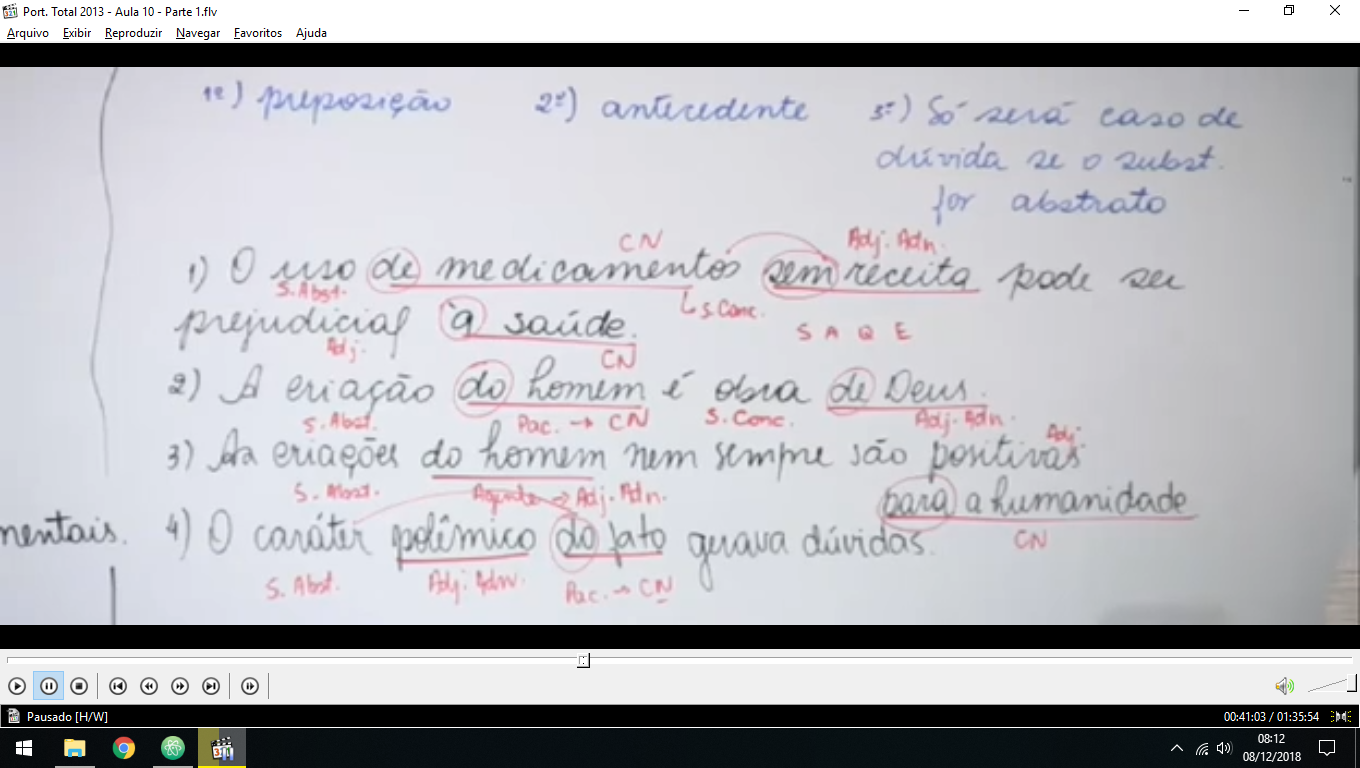 Port. Total 2013 - Aula 10 - Parte 1.flv
Arquivo Exibir Reproduzir Navegar Favoritos Ajuda
1º) preposição 2º) antecedente 3º) Só será caso de
dúvida se o subst.
for abstrato
CN Adj. Adn.
1) O uso de medicamentos sem receita pode ser
S. Abst. S. Conc.
prejudicial à saúde. S A Q E
Adj. CN
2) A criação do homem é obra de Deus.
S. Abst. Pac. → CN S. Conc. Adj. Adn. Adj.
3) As criações do homem nem sempre são positivas
S. Abst. Agente → Adj. Adn. para a humanidade
mentais. 4) O caráter polêmico do fato gerava dúvidas. CN
S. Abst. Adj. Adn. Pac. → CN
Pausado [H/W] 00:41:03 / 01:35:54
08:12
08/12/2018